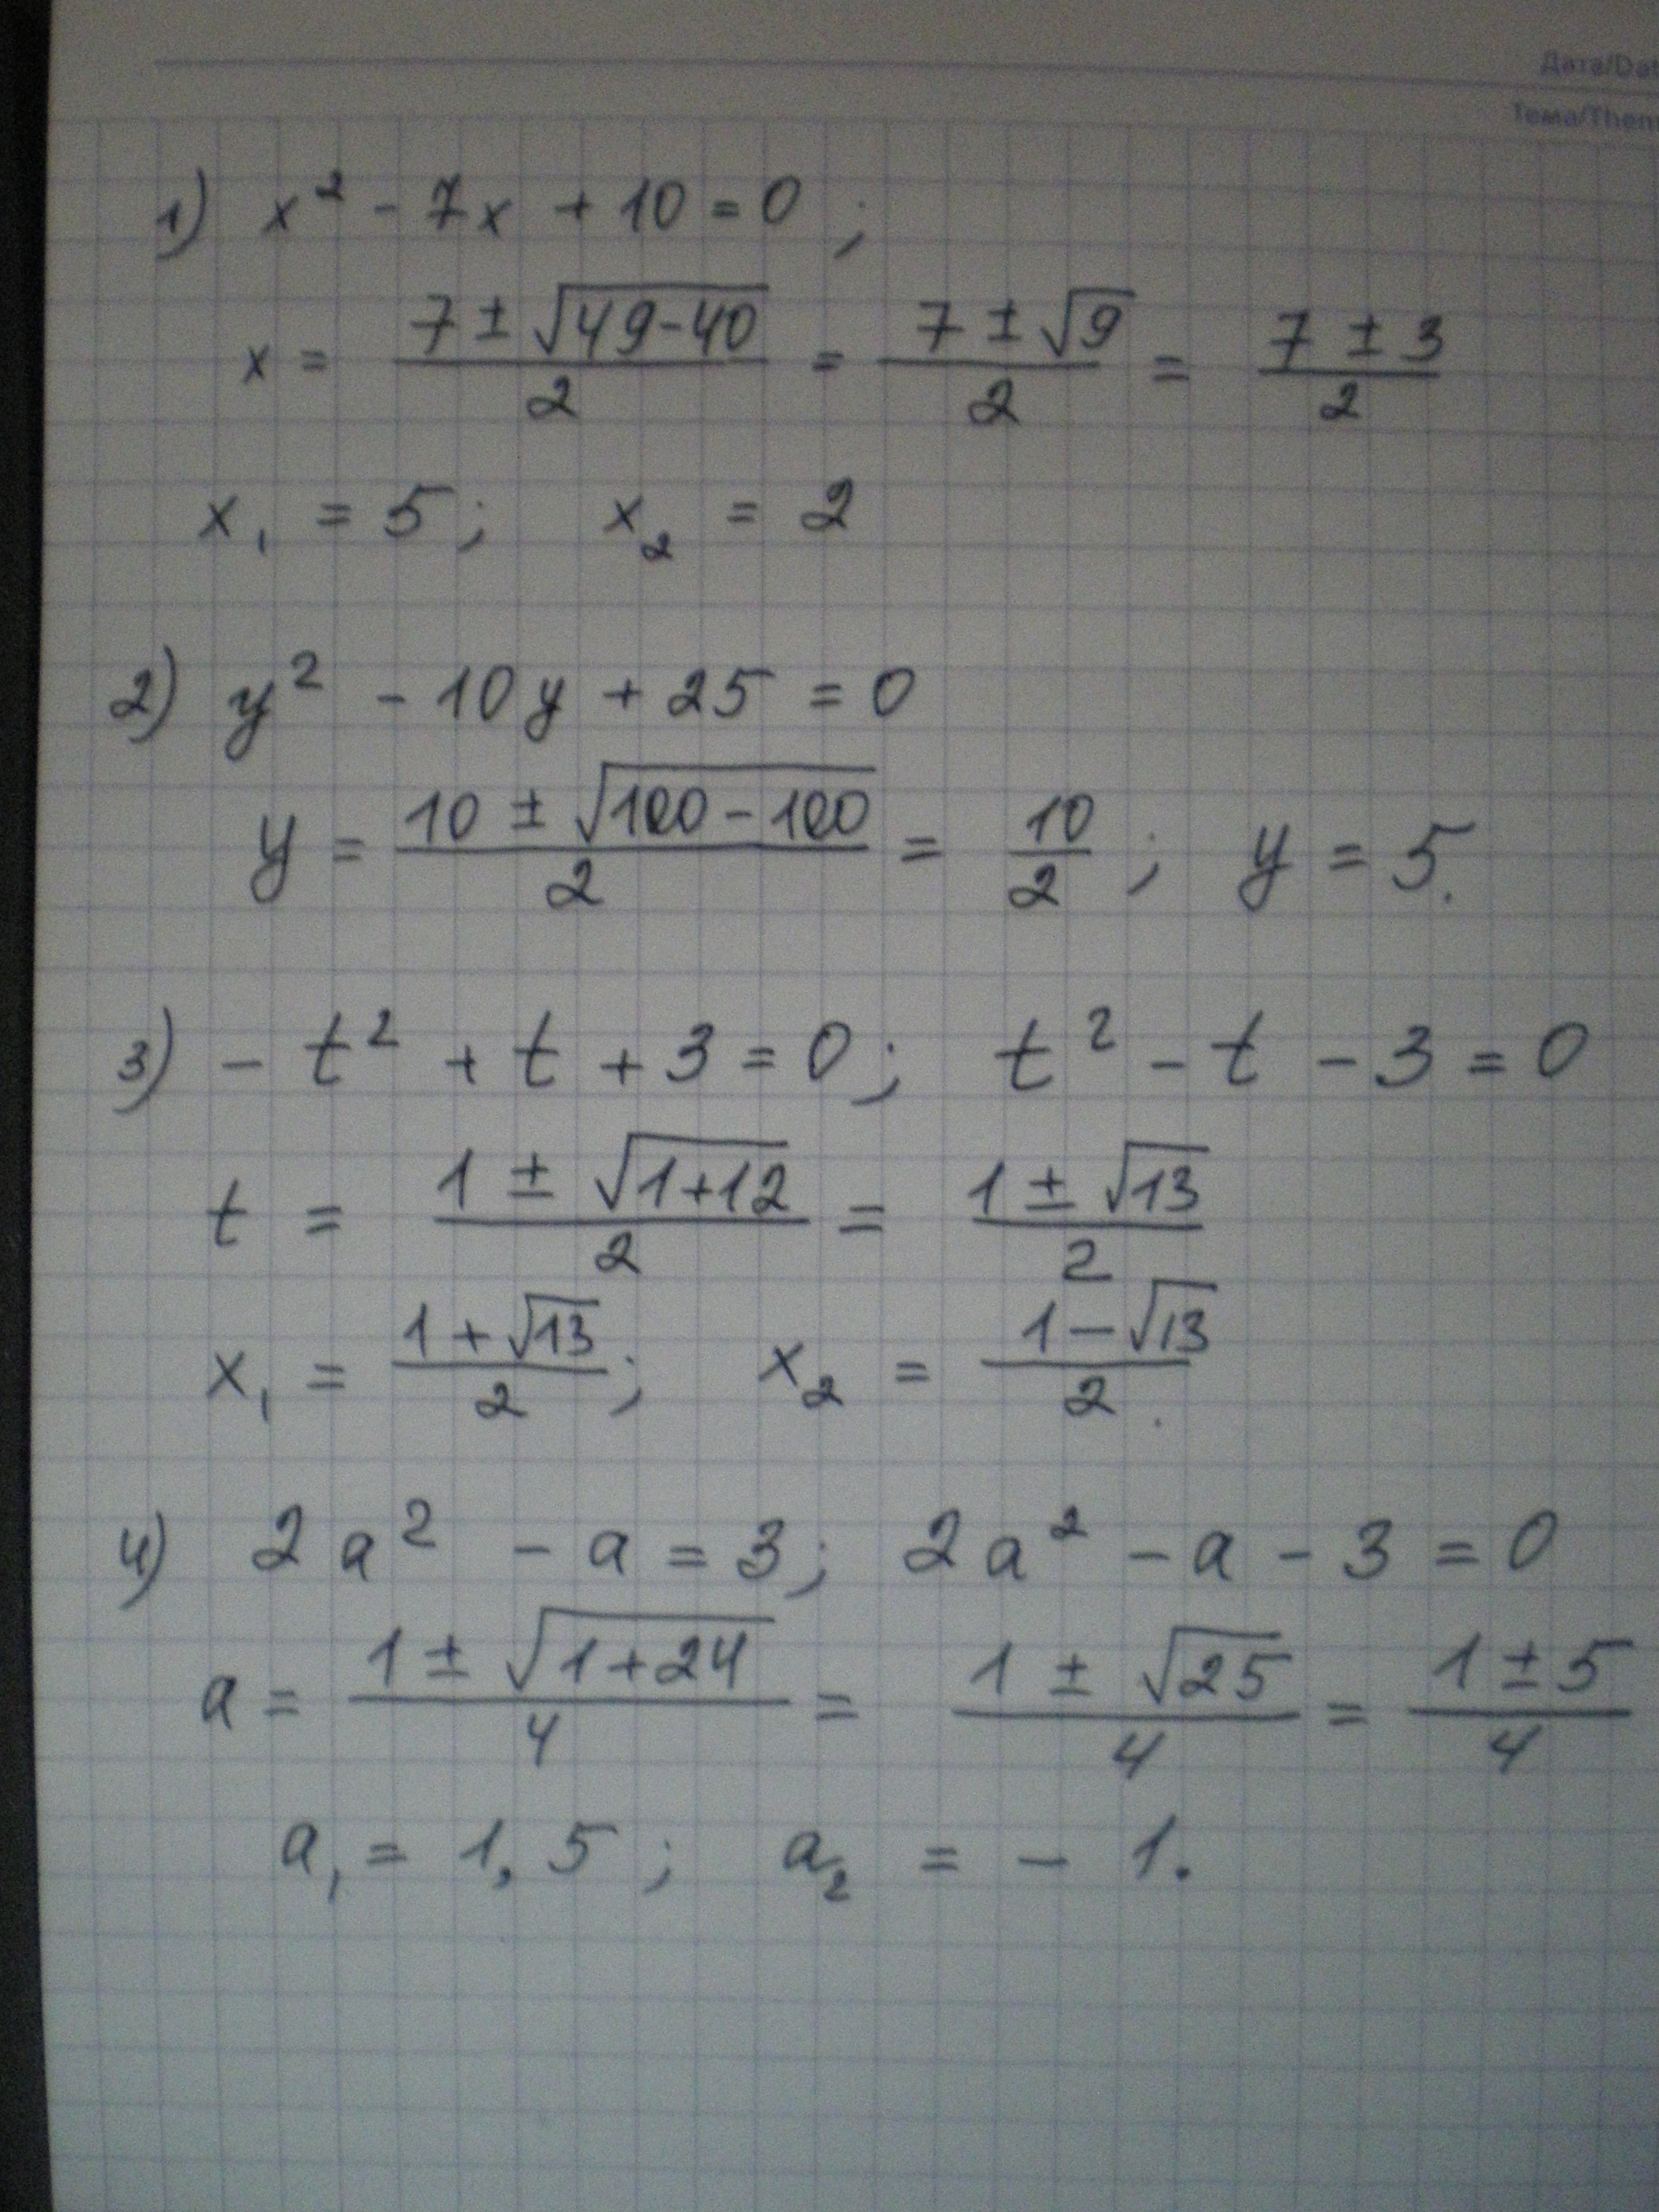 Дата/Dat
Тема/Them
1) x² - 7x + 10 = 0 ;
x = (7 ± √(49-40))/2 = (7 ± √9)/2 = (7 ± 3)/2
x₁ = 5 ; x₂ = 2
2) y² - 10y + 25 = 0
y = (10 ± √(100 - 100))/2 = 10/2 ; y = 5.
3) - t² + t + 3 = 0 ; t² - t - 3 = 0
t = (1 ± √(1+12))/2 = (1 ± √13)/2
x₁ = (1 + √13)/2 ; x₂ = (1 - √13)/2 .
4) 2a² - a = 3 ; 2a² - a - 3 = 0
a = (1 ± √(1+24))/4 = (1 ± √25)/4 = (1 ± 5)/4
a₁ = 1,5 ; a₂ = - 1.